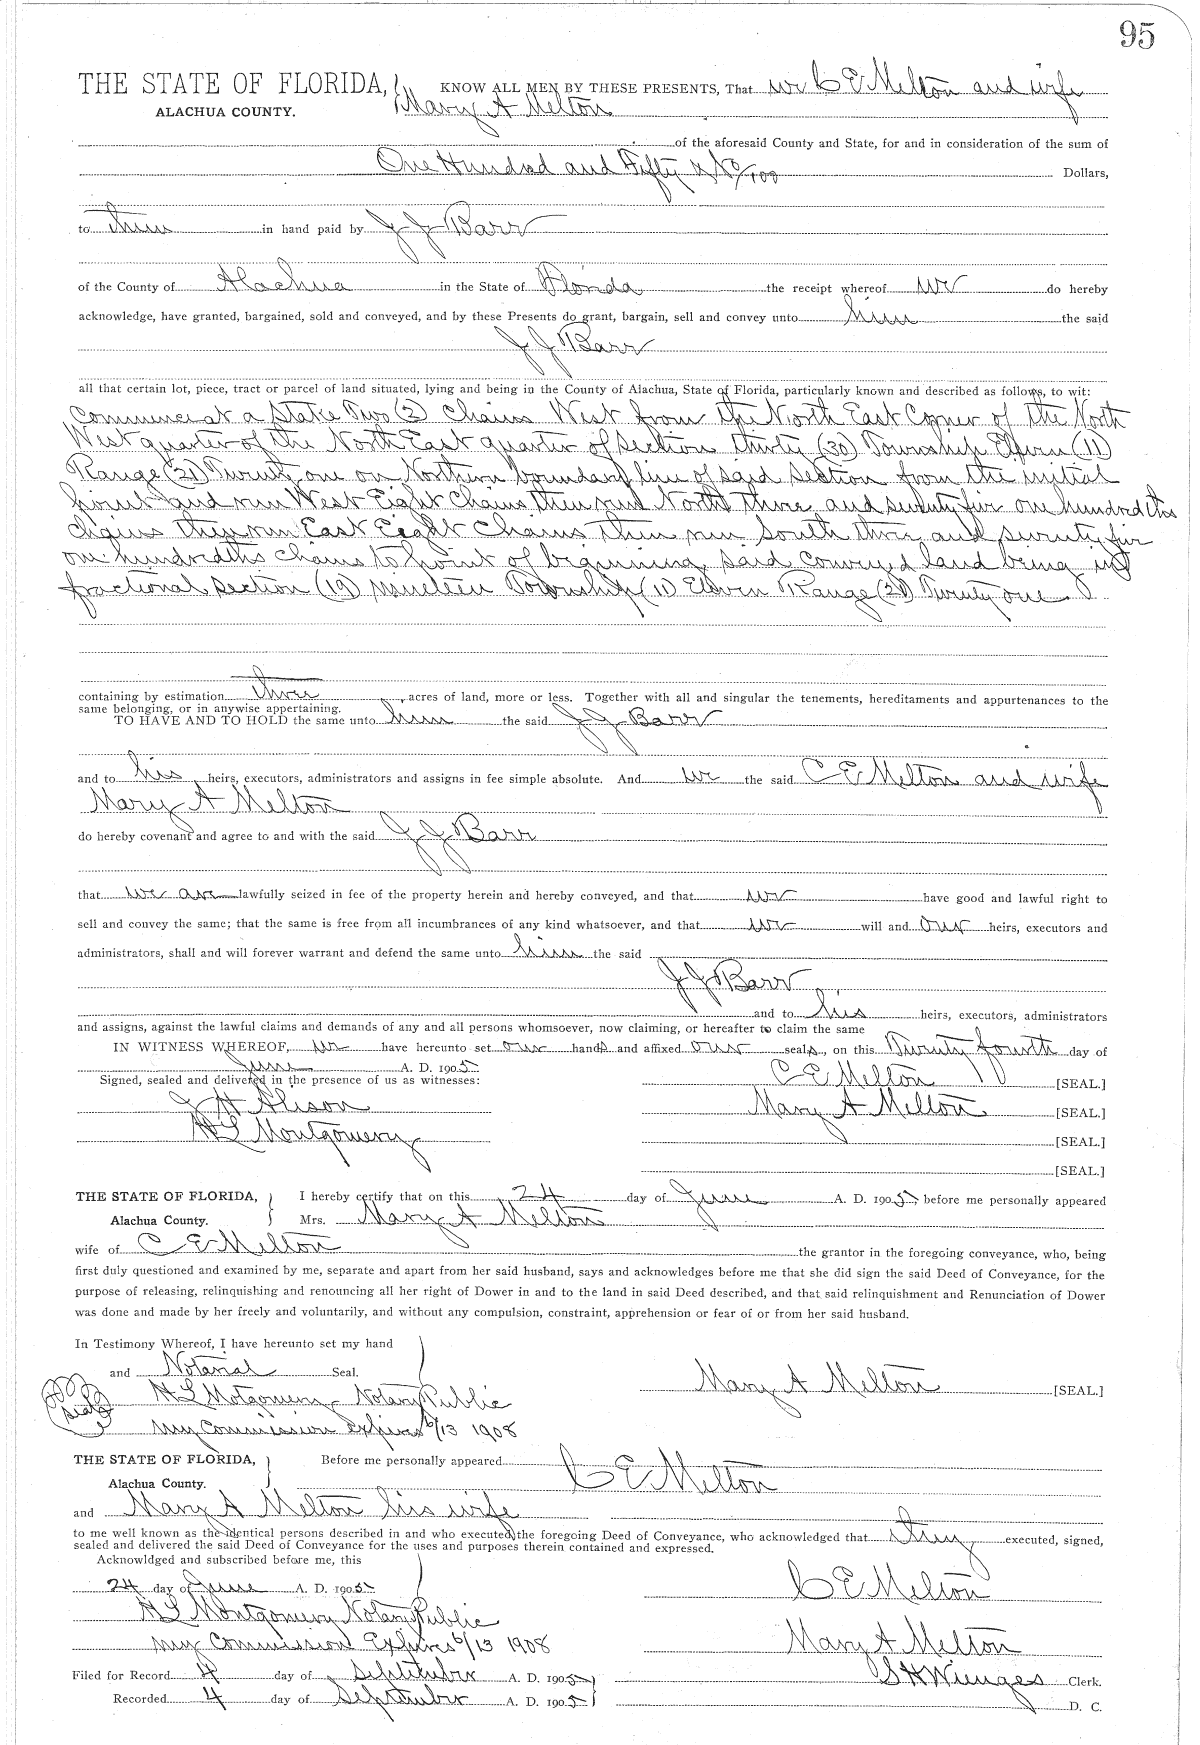 95
THE STATE OF FLORIDA, KNOW ALL MEN BY THESE PRESENTS, That we C E Melton and wife
ALACHUA COUNTY. Mary A Melton
of the aforesaid County and State, for and in consideration of the sum of
One Hundred and Fifty & no/100 Dollars,
to them in hand paid by J J Barr
of the County of Alachua in the State of Florida the receipt whereof we do hereby
acknowledge, have granted, bargained, sold and conveyed, and by these Presents do grant, bargain, sell and convey unto him the said
J J Barr
all that certain lot, piece, tract or parcel of land situated, lying and being in the County of Alachua, State of Florida, particularly known and described as follows, to wit:
Commence at a Stake Two (2) Chains West from the North East Corner of the North
West quarter of the North East quarter of Section thirty (30) Township Eleven (11)
Range (21) Twenty one on Northern boundary line of said Section from the initial
point and run West Eight Chains then run North three and seventy five one hundredths
chains then run East Eight Chains then run South three and seventy five
one hundredths chains to point of beginning, said conveyed land being in
fractional section (19) Nineteen Township (11) Eleven Range (21) Twenty one
containing by estimation three acres of land, more or less. Together with all and singular the tenements, hereditaments and appurtenances to the
same belonging, or in anywise appertaining.
TO HAVE AND TO HOLD the same unto him the said J J Barr
and to his heirs, executors, administrators and assigns in fee simple absolute. And we the said C E Melton and wife
Mary A Melton
do hereby covenant and agree to and with the said J J Barr
that we are lawfully seized in fee of the property herein and hereby conveyed, and that we have good and lawful right to
sell and convey the same; that the same is free from all incumbrances of any kind whatsoever, and that we will and our heirs, executors and
administrators, shall and will forever warrant and defend the same unto him the said
J J Barr
and to his heirs, executors, administrators
and assigns, against the lawful claims and demands of any and all persons whomsoever, now claiming, or hereafter to claim the same
IN WITNESS WHEREOF, we have hereunto set our hands and affixed our seals, on this Twenty fourth day of
June A. D. 1905
Signed, sealed and delivered in the presence of us as witnesses: C E Melton [SEAL.]
J H Alison Mary A Melton [SEAL.]
H L Montgomery [SEAL.]
[SEAL.]
THE STATE OF FLORIDA, I hereby certify that on this 24 day of June A. D. 1905, before me personally appeared
Alachua County. Mrs. Mary A Melton
wife of C E Melton the grantor in the foregoing conveyance, who, being
first duly questioned and examined by me, separate and apart from her said husband, says and acknowledges before me that she did sign the said Deed of Conveyance, for the
purpose of releasing, relinquishing and renouncing all her right of Dower in and to the land in said Deed described, and that said relinquishment and Renunciation of Dower
was done and made by her freely and voluntarily, and without any compulsion, constraint, apprehension or fear of or from her said husband.
In Testimony Whereof, I have hereunto set my hand
and Notarial Seal.
Seal H L Motgomery Notary Public Mary A Melton [SEAL.]
My Commission expires 6/13 1908
THE STATE OF FLORIDA, Before me personally appeared C E Melton
Alachua County.
and Mary A Melton his wife
to me well known as the identical persons described in and who executed the foregoing Deed of Conveyance, who acknowledged that they executed, signed,
sealed and delivered the said Deed of Conveyance for the uses and purposes therein contained and expressed.
Acknowldged and subscribed before me, this
24 day of June A. D. 1905 C E Melton
H L Montgomery Notary Public
My Commission Expires 6/13 1908 Mary A Melton
Filed for Record 4 day of September A. D. 1905 S H Wienges Clerk.
Recorded 4 day of September A. D. 1905 D. C.